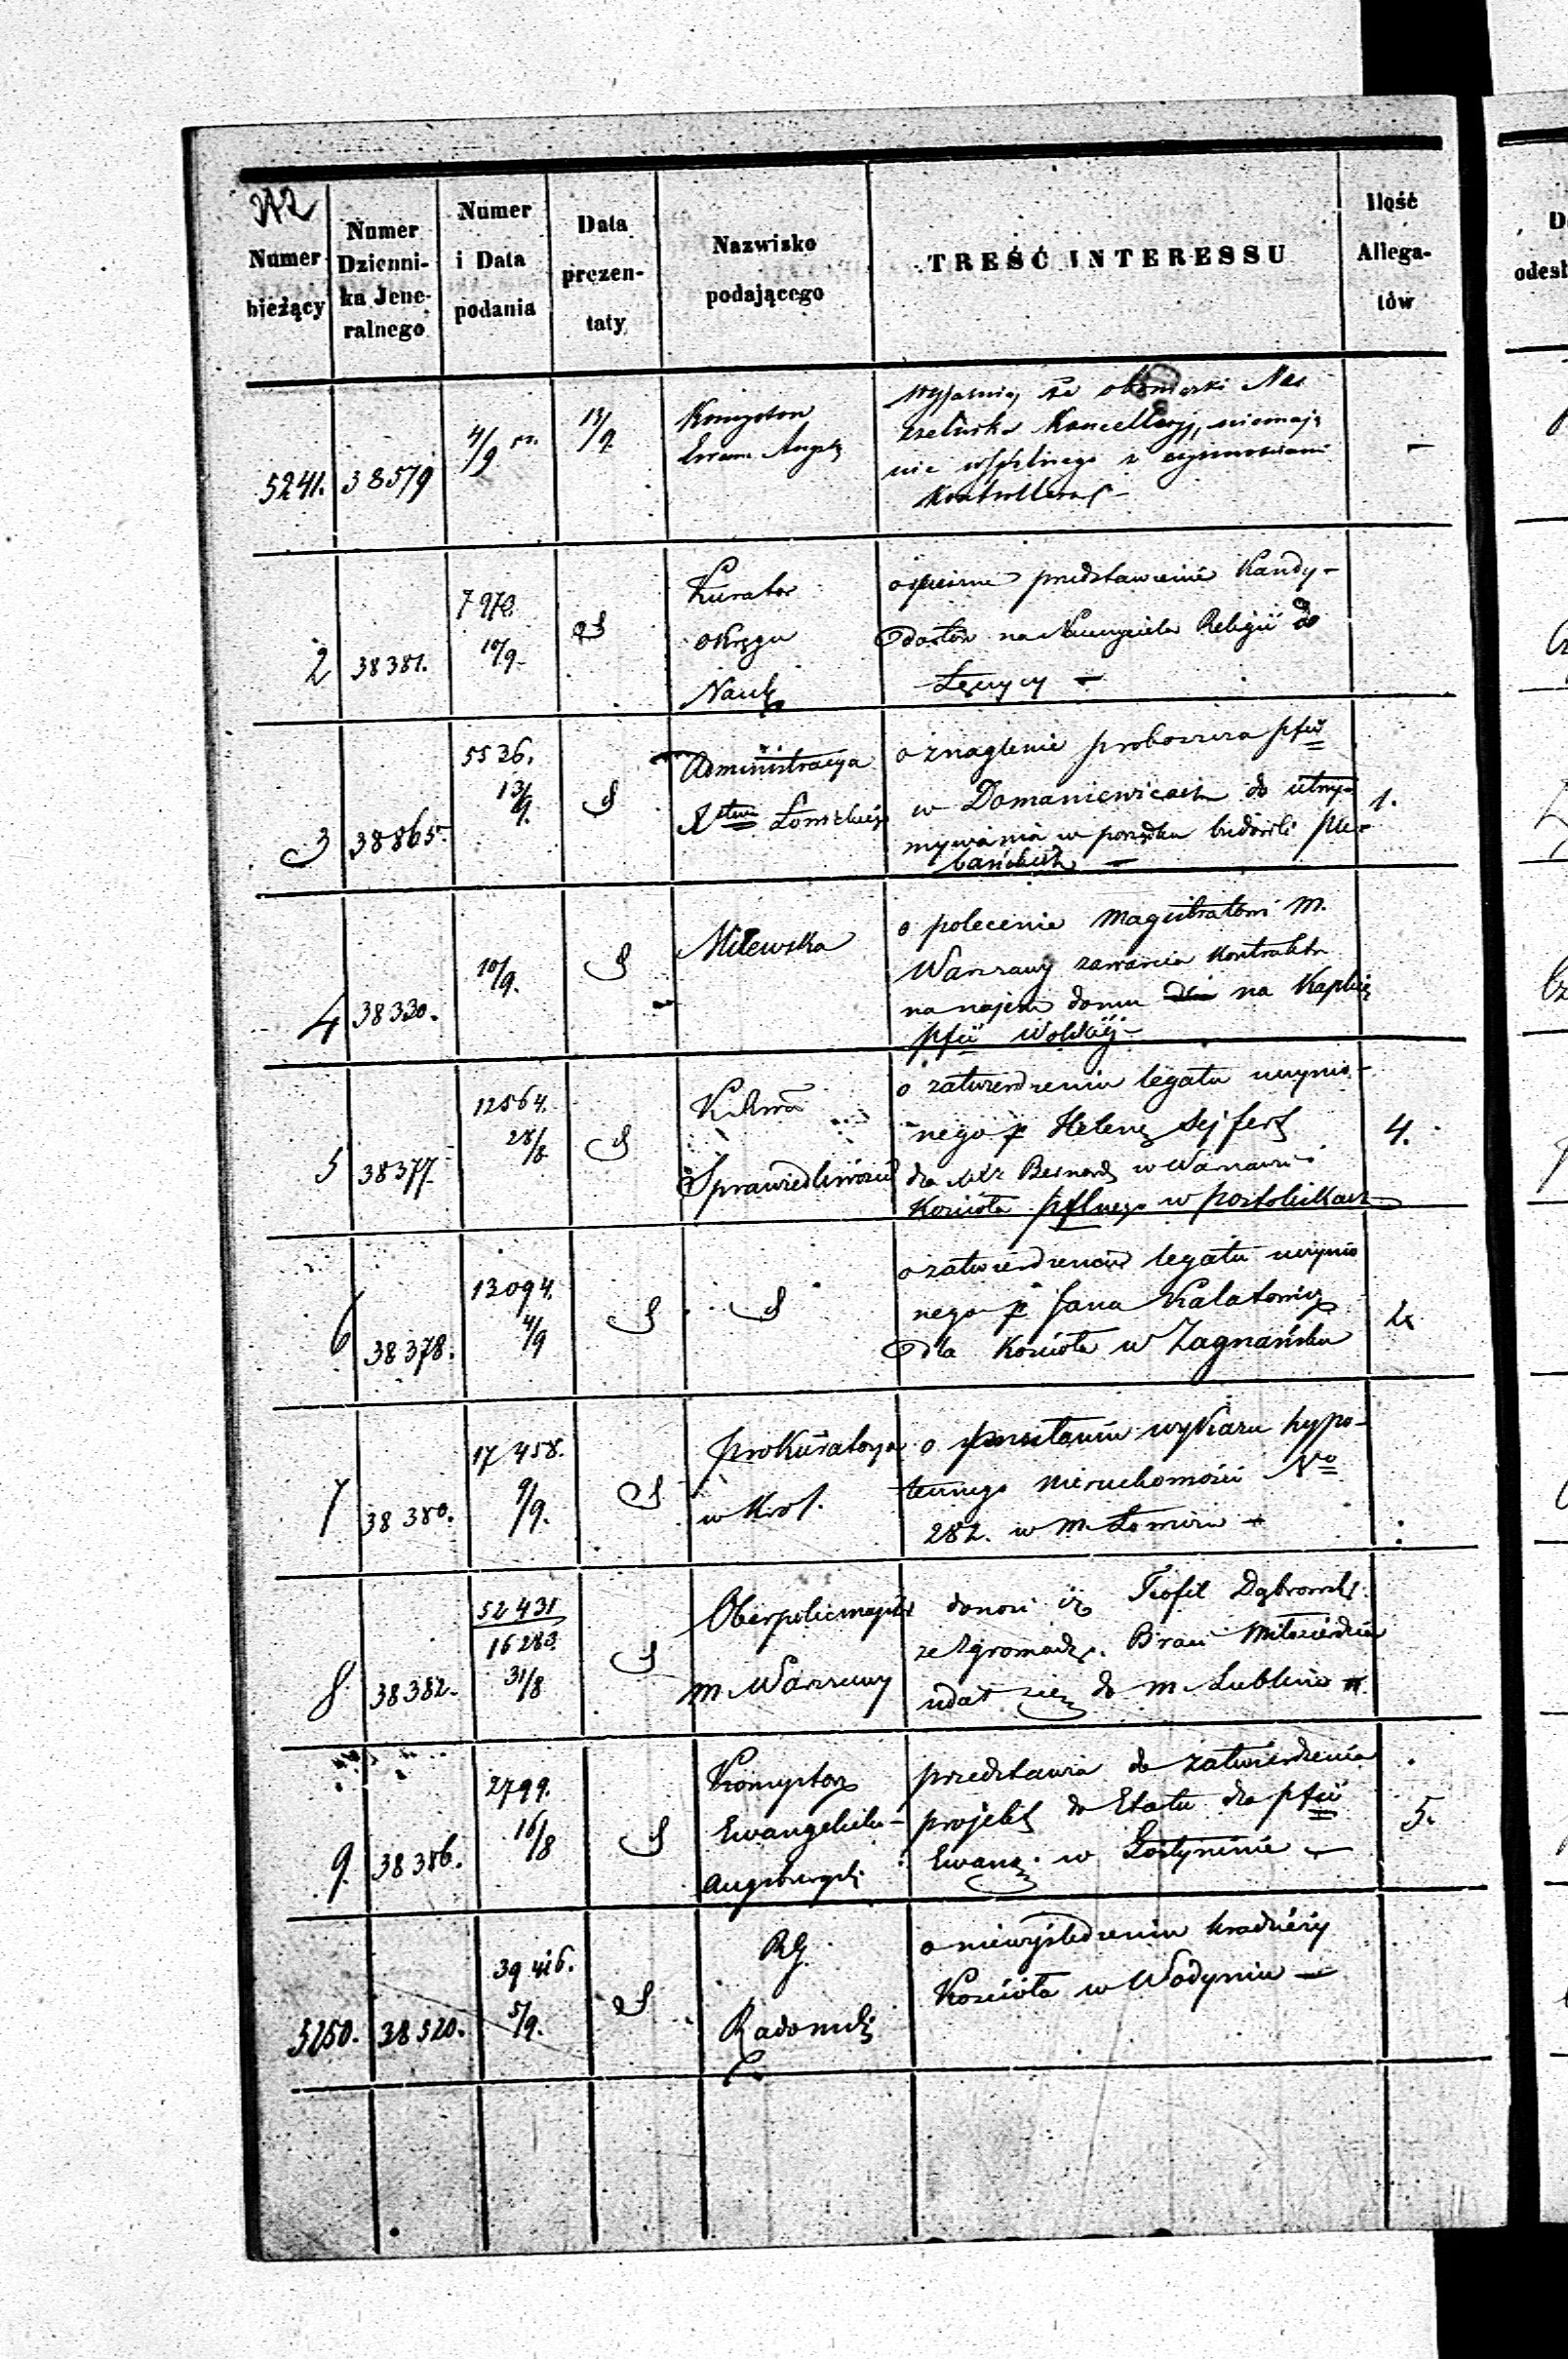 272
Numer bieżący
Numer Dzienni-ka Jene-ralnego
Numer i Data podania
Data prezen-taty
Nazwisko podającego
TREŚĆ INTERESSU
Ilość Allega-tów
5241.
38579
4/9
13/9
Konsystorz
Ewan. Augsb
wyjaśnia, że obowiązki Na
czelnika Kancellaryj, niemają
nic wspólnego z czynnościami
Kontrollera
–
2
38381.
7973.
10/9
Kurator
Okręgu
Nauk
o spieszne przedstawienie Kandy-
datów na Nauczyciela Religii do
Łęczycy –
3
38865.
5536.
13/9.
Administracya
o znaglenie proboszcza pfii
w Domaniewicach do utrzy-
mywania w porządku budowli ple-
bańskich –
1.
4
38330.
10/9.
Milewska
o polecenie Magistratowi M.
Warszawy zawarcia Kontraktu
na najem domu na Kaplicę
pfii Wolskiéj –
5
38377.
12564.
28/8
Sprawiedliwości
o zatwierdzeniu legatu uczynio-
nego p Helenę Sejfert
dla Bernard w Warszawie i
Kościoła pflnego w Postoliskach
4.
6
38378.
13094.
4/9
o zatwierdzeniu legatu uczynio
nego p Jana
dla Kościoła w Zagnańsku
7
38380.
17458.
9/9.
Prokuratorya
w Król.
o przesłaniu wykazu hypo-
tecznego Nieruchomości No
282. w M.
8
38382.
52431
16283
31/8
Oberpolicmajster
m. Warszawy
donosi iż Teofil Dąbrowski
ze Zgromadz. Braci Miłosierdzia
udał się do m. Lublina
9.
38386.
2799.
16/8
Konsystorz
Ewangelicko-
Augsburgski
przedstawia do zatwierdzenia
projekt do Etatu dla pfii
Ewang. w Gostyninie –
5.
5250.
38520.
39416.
5/9.
RG.
Radomski
o niewyśledzeniu kradzieży
Kościoła w Wodyniu –
D
odesł